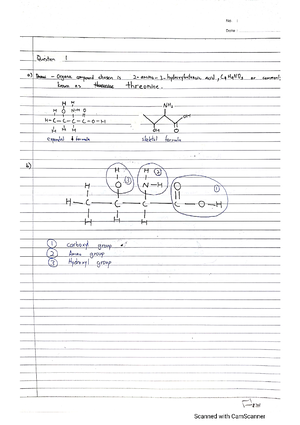 No :
Date :
Question 1
a) - Organic compound chosen is 2-amino-3-hydroxybutanoic acid, C4H9NO3 or commonly
known as threonine.
H H
H N-H O
H-C-C-C-C-O-H
H
NH2
OH
OH O
expanded formula skeletal formula
b)
H H
O N-H O
H
H-C-C-C-C-O-H
H H H
① carboxyl group
② Amino group
③ Hydroxyl group
Scanned with CamScanner